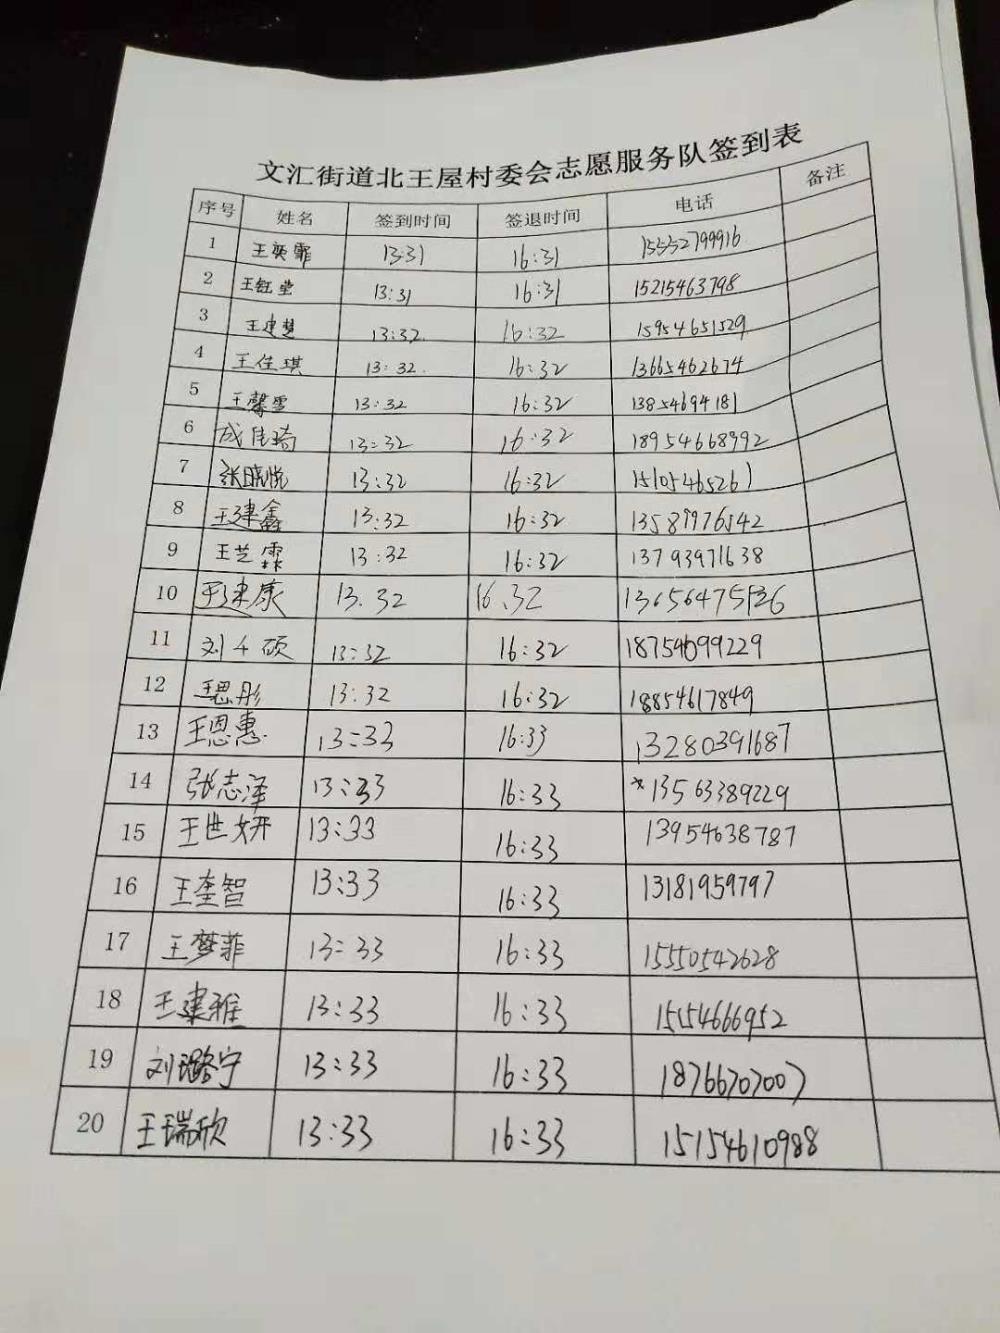 文汇街道北王屋村委会志愿服务队签到表
序号 姓名 签到时间 签退时间 电话 备注
1 王奕霏 13:31 16:31 15552799916
2 王钰莹 13:31 16:31 15215463798
3 王建慧 13:32 16:32 15954651529
4 王佳琪 13:32. 16:32 13665462674
5 王馨雪 13:32 16:32 13854694181
6 成佳琦 13:32 16:32 18954668992
7 张晓悦 13:32 16:32 15105465261
8 王建鑫 13:32 16:32 13589976542
9 王芝霖 13:32 16:32 13793971638
10 王建康 13.32 16.32
11 刘千硕 13:32 16:32 18754699229
12 王思彤 13:32 16:32 18854617849
13 王恩惠 13:33 16:33 13280391687
14 张志泽 13:33 16:33 *13563389229
15 王世妍 13:33 16:33 13954638787
16 王奎智 13:33 16:33 13181959797
17 王梦菲 13:33 16:33 15550542628
18 王建雅 13:33 16:33 15154666952
19 刘璐宁 13:33 16:33 18766707007
20 王瑞欣 13:33 16:33 15154610988